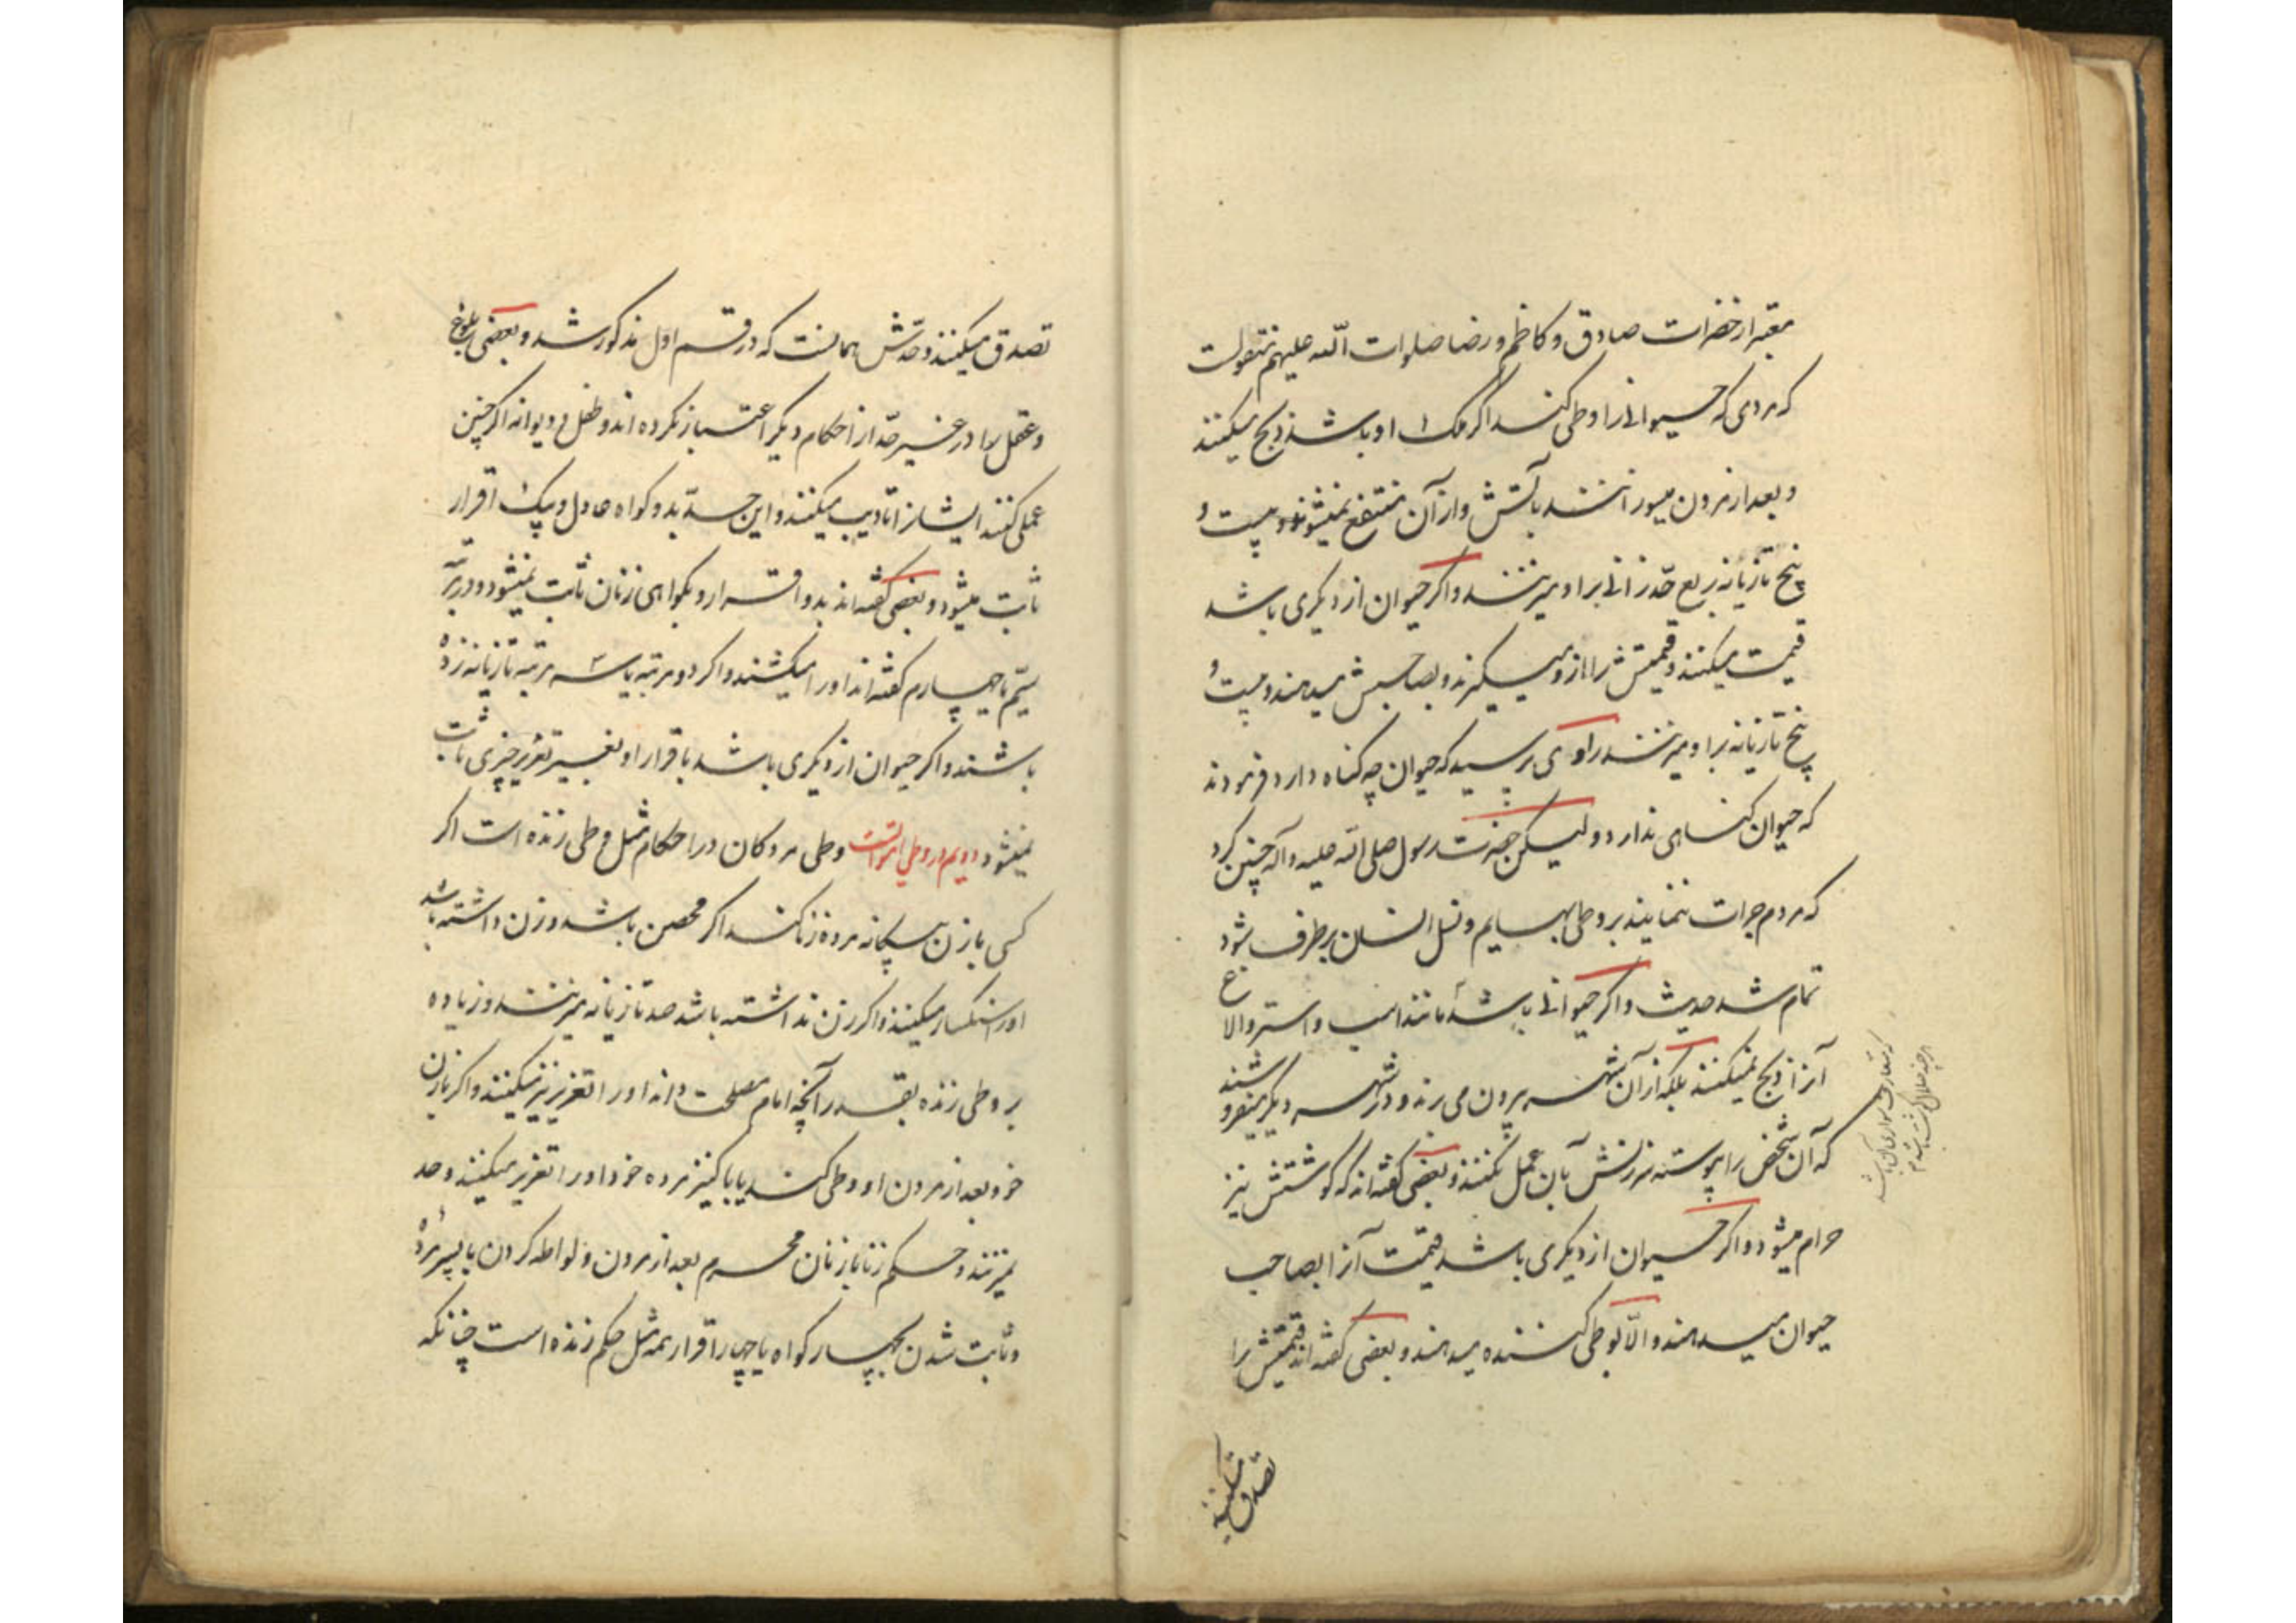 معتبر از حضرات صادق و کاظم و رضا صلوات الله علیهم منقولست
که مردی که حیوانی را وطی کند اگر ملک او باشد ذبح میکنند
و بعد از مردن میسوزانند بآتش و از آن منتفع نمیشوند و بیست و
پنج تازیانه ربع حد زانی بر او میزنند و اگر حیوان از دیگری باشد
قیمت میکنند و قیمتش را ازو میگیرند و بصاحبش میدهند و بیست و
پنج تازیانه بر او میزنند راوی پرسید که حیوان چه گناه دارد فرمودند
که حیوان گناهی ندارد و لیکن حضرت رسول صلی الله علیه و آله چنین کرد
که مردم جرات ننمایند بر وطی بهایم و نسل انسان برطرف شود
تمام شد حدیث و اگر حیوانی باشد مانند اسب و استر و الاغ
آنرا ذبح نمیکنند بلکه از آن شهر بیرون می برند و در شهر دیگر میفروشند
که آن شخص را پیوسته سرزنش بآن عمل نکنند و بعضی گفته اند که گوشتش نیز
حرام میشود و اگر حیوان از دیگری باشد قیمت آنرا بصاحب
حیوان میدهند و الا بوطی کننده میدهند و بعضی گفته اند قیمتش را
تصدق میکنند
تصدق میکنند و حدش همانست که در قسم اول مذکور شد و بعضی بلوغ
و عقل را در غیر حد از احکام دیگر اعتبار نکرده اند و طفل و دیوانه اگر چنین
عملی کنند ایشانرا تادیب میکنند و این حد بدو گواه عادل و بیک اقرار
ثابت میشود و بعضی گفته اند بدو اقرار و بگواهی زنان ثابت نمیشود و در مرتبه
سیم یا چهارم گفته اند او را میکشند و اگر دو مرتبه یا سه مرتبه تازیانه زده
باشند و اگر حیوان از دیگری باشد باقرار او بغیر تعزیر چیزی ثابت
نمیشود دویم در وطی امواتست وطی مردگان در احکام مثل وطی زنده است اگر
کسی با زن بیگانه مرده زنا کند اگر محصن باشد و زن داشته باشد
او را سنگسار میکنند و اگر زن نداشته باشد صد تازیانه میزنند و زیاده
بر وطی زنده بقدر آنچه امام مصلحت داند او را تعزیر نیز میکنند و اگر با زن
خود بعد از مردن او وطی کند یا با کنیز مرده خود او را تعزیر میکنند و حد
نمیزنند و حکم زنا با زنان محرم بعد از مردن و لواطه کردن با پسر مرده
و ثابت شدن بچهار گواه یا چهار اقرار همه مثل حکم زنده است چنانکه